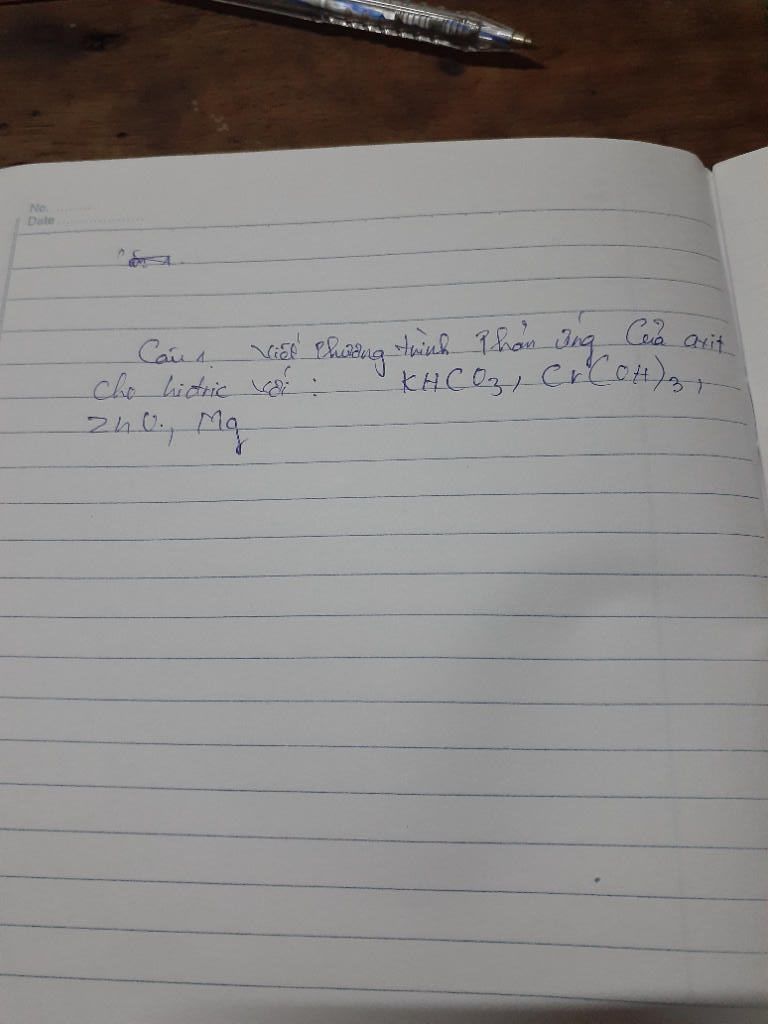 No. ..........
Date ......................
Câu 1. Viết phương trình phản ứng của axit
Cho hidric với : KHCO3, Cr(OH)3,
ZnO, Mg